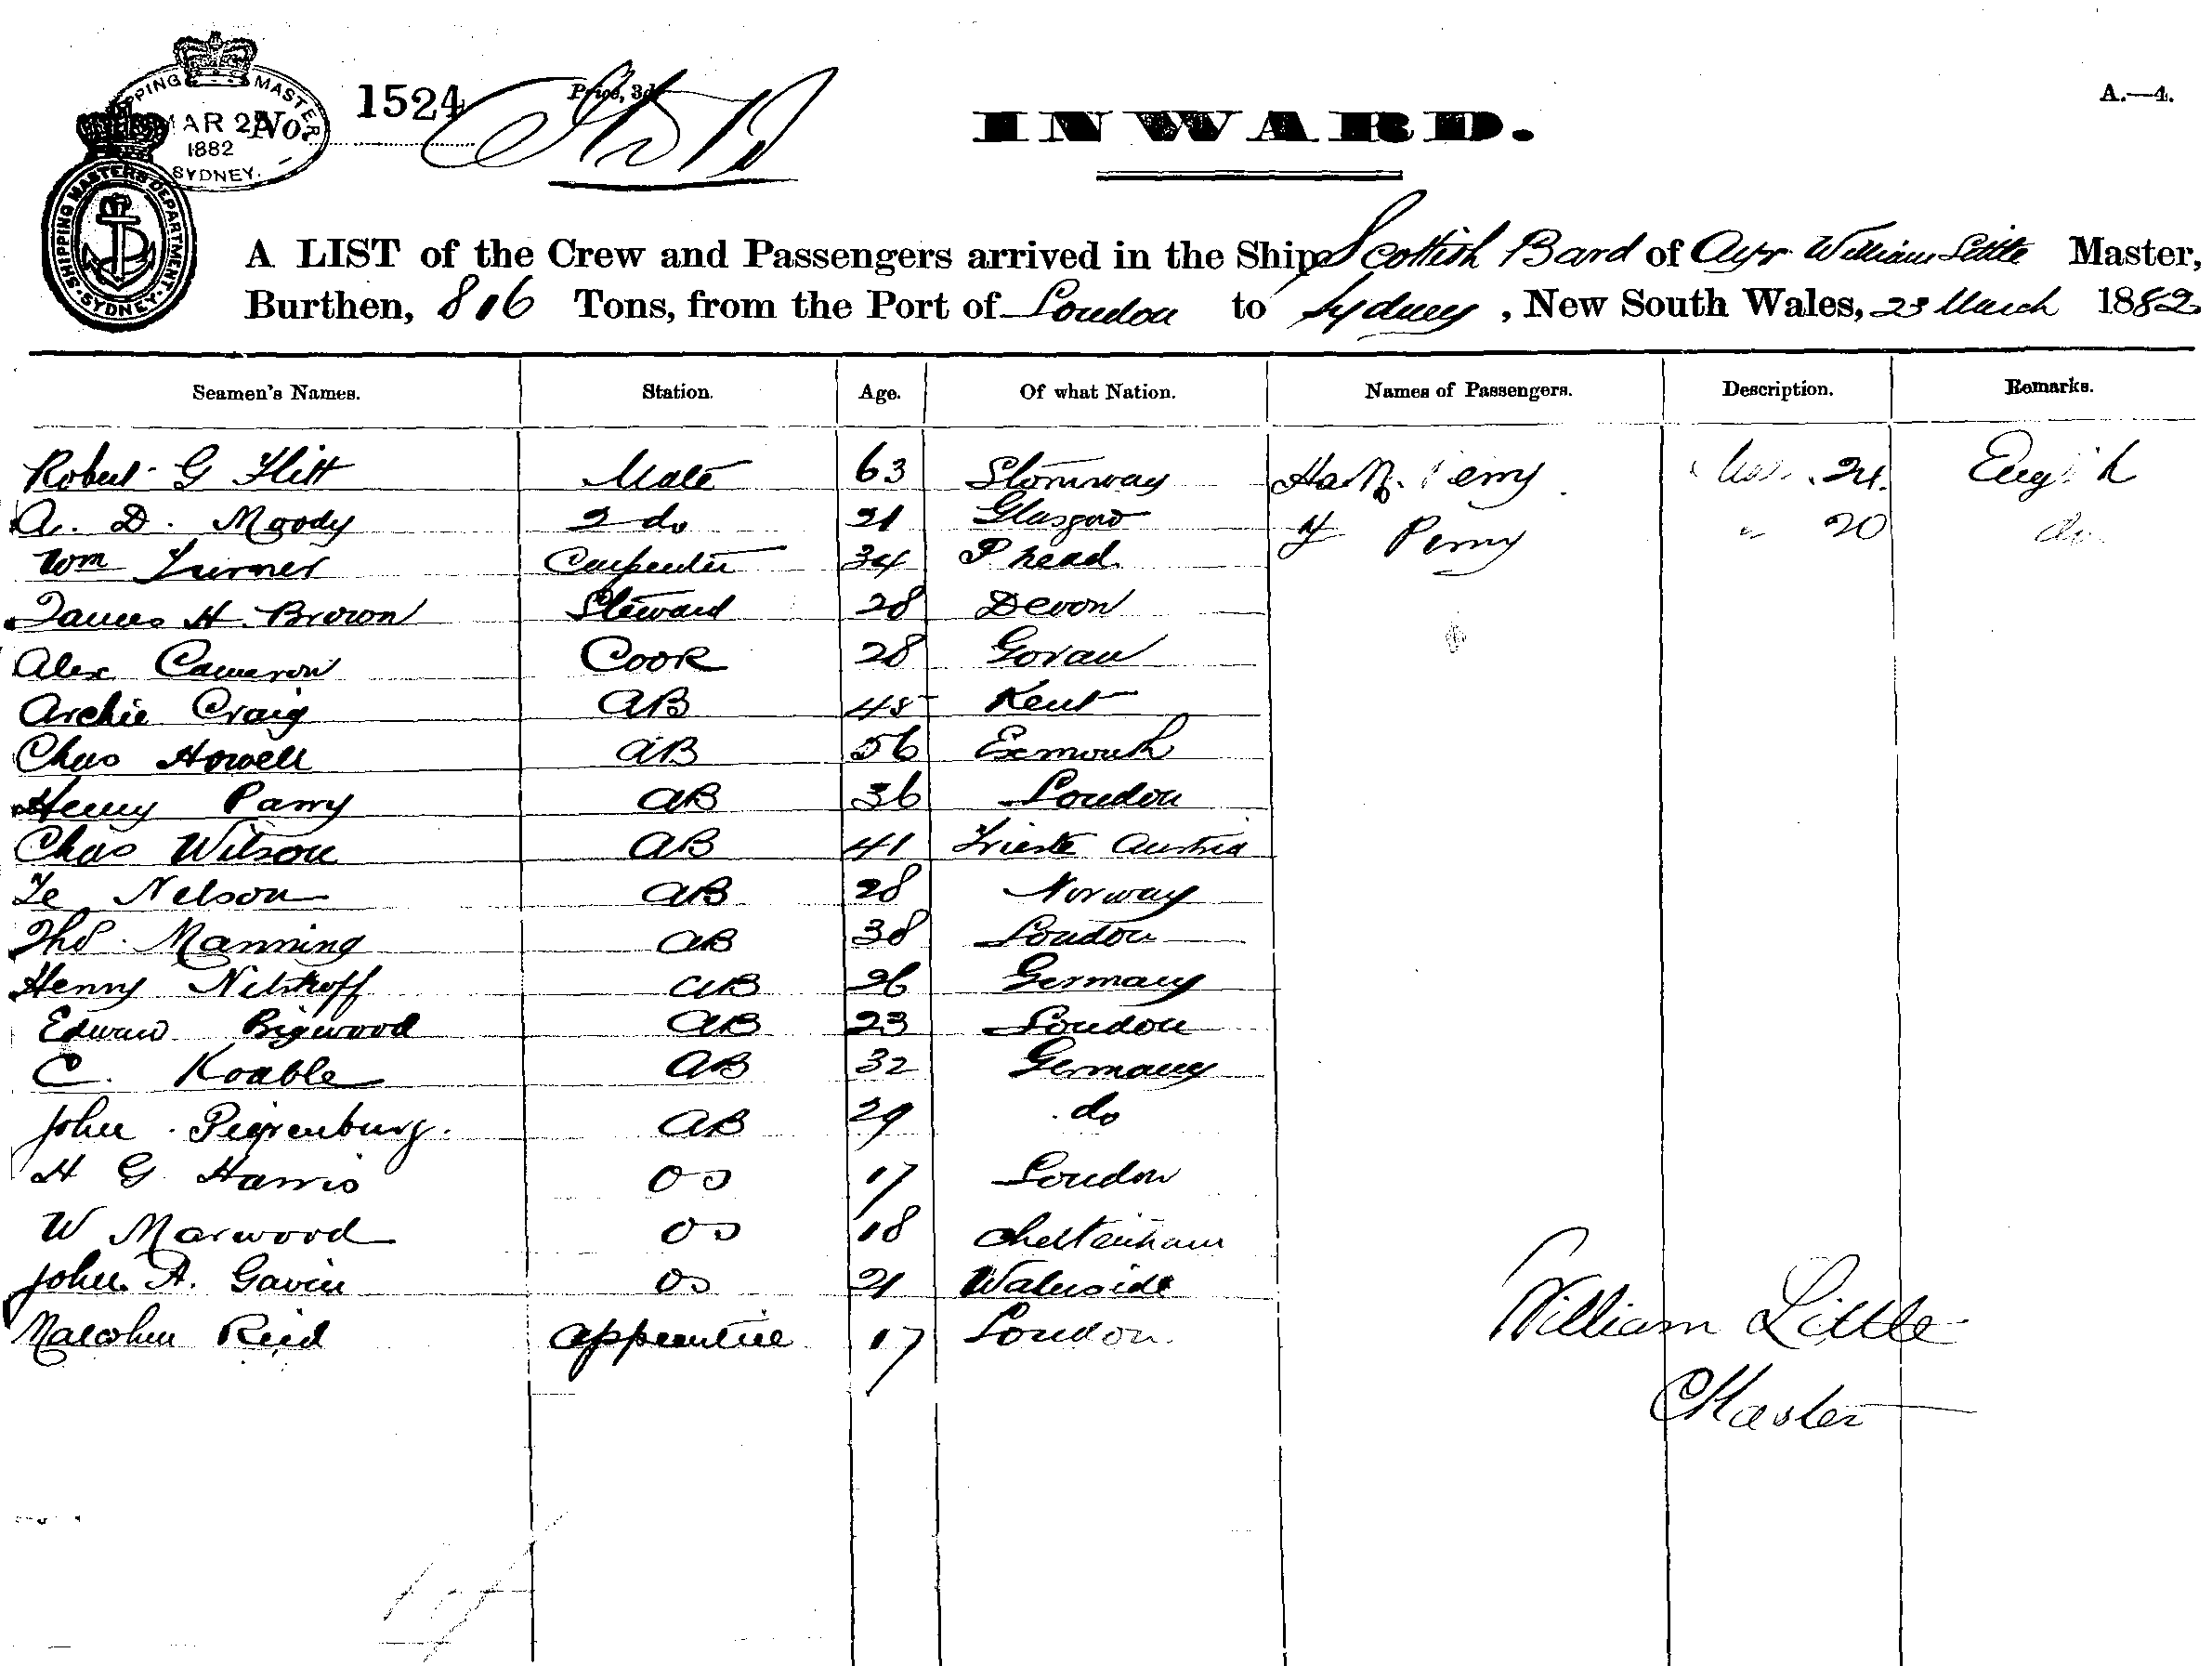 SHIPPING MASTER
MAR 2
1882
SYDNEY.
SHIPPING MASTERS DEPARTMENT. SYDNEY.
No. 1524
Price, 3d
A.—4.
INWARD.
A LIST of the Crew and Passengers arrived in the Ship Scottish Bard of Ayr William Little Master,
Burthen, 816 Tons, from the Port of London to Sydney, New South Wales, 23 March 1882
Seamen's Names. Station. Age. Of what Nation. Names of Passengers. Description. Remarks.
Robert G Flitt Mate 63 Stornway Perry 24. English
A. D. Moody 2 do 21 Glasgow Perry " 20 do
Wm Turner Carpenter 34 P head
James H. Brown Steward 28 Devon
Alex Cameron Cook 28 Govan
Archie Craig AB 45 Kent
Chas Howell AB 56 Exmouth
Henry Parry AB 36 London
Chas Wilson AB 41 Trieste Austria
Nelson AB 28 Norway
Thos. Manning AB 38 London
Henry AB 26 Germany
Edward Bigwood AB 23 London
C. Koable AB 32 Germany
John AB 29 do
H G Harris OS 17 London
W Marwood OS 18 Cheltenham
John A. Gavin OS 21 Waterside
Malcolm Reid apprentice 17 London.
William Little
Master